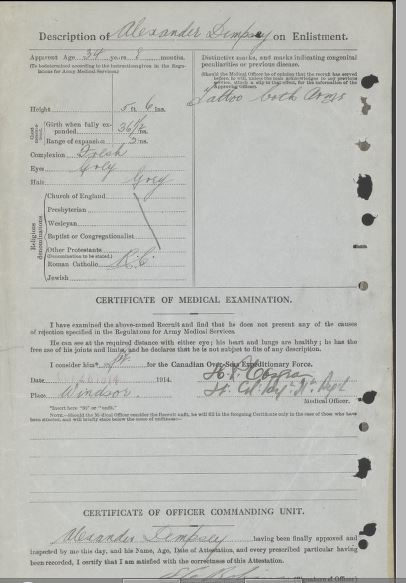 Description of Alexander Dempsey on Enlistment.
Apparent Age 34 years 8 months.
(To be determined according to the instructions given in the Regulations for Army Medical Services.)
Distinctive marks, and marks indicating congenital
peculiarities or previous disease.
(Should the Medical Officer be of opinion that the recruit has served
before, he will, unless the man acknowledges to any previous
service, attach a slip to that effect, for the information of the
Approving Officer).
Tattoo both Arms
Height 5 ft. 6 ins.
Chest
Girth when fully expanded 36 1/2 ins.
Range of expansion 3 ins.
Complexion Fresh
Eyes
Hair Grey
Religious denominations
Church of England
Presbyterian
Wesleyan
Baptist or Congregationalist
Other Protestants
(Denomination to be stated.)
Roman Catholic R.C.
Jewish
CERTIFICATE OF MEDICAL EXAMINATION.
I have examined the above-named Recruit and find that he does not present any of the causes
of rejection specified in the Regulations for Army Medical Services.
He can see at the required distance with either eye; his heart and lungs are healthy; he has the
free use of his joints and limbs, and he declares that he is not subject to fits of any description.
I consider him* fit for the Canadian Over-Seas Expeditionary Force.
Date 1914.
Place Windsor.
Medical Officer.
*Insert here "fit" or "unfit."
NOTE.—Should the Medical Officer consider the Recruit unfit, he will fill in the foregoing Certificate only in the case of those who have
been attested, and will briefly state below the cause of unfitness:—
CERTIFICATE OF OFFICER COMMANDING UNIT.
Alexander Dempsey having been finally approved and
inspected by me this day, and his Name, Age, Date of Attestation, and every prescribed particular having
been recorded, I certify that I am satisfied with the correctness of this Attestation.
(Signature of Officer)